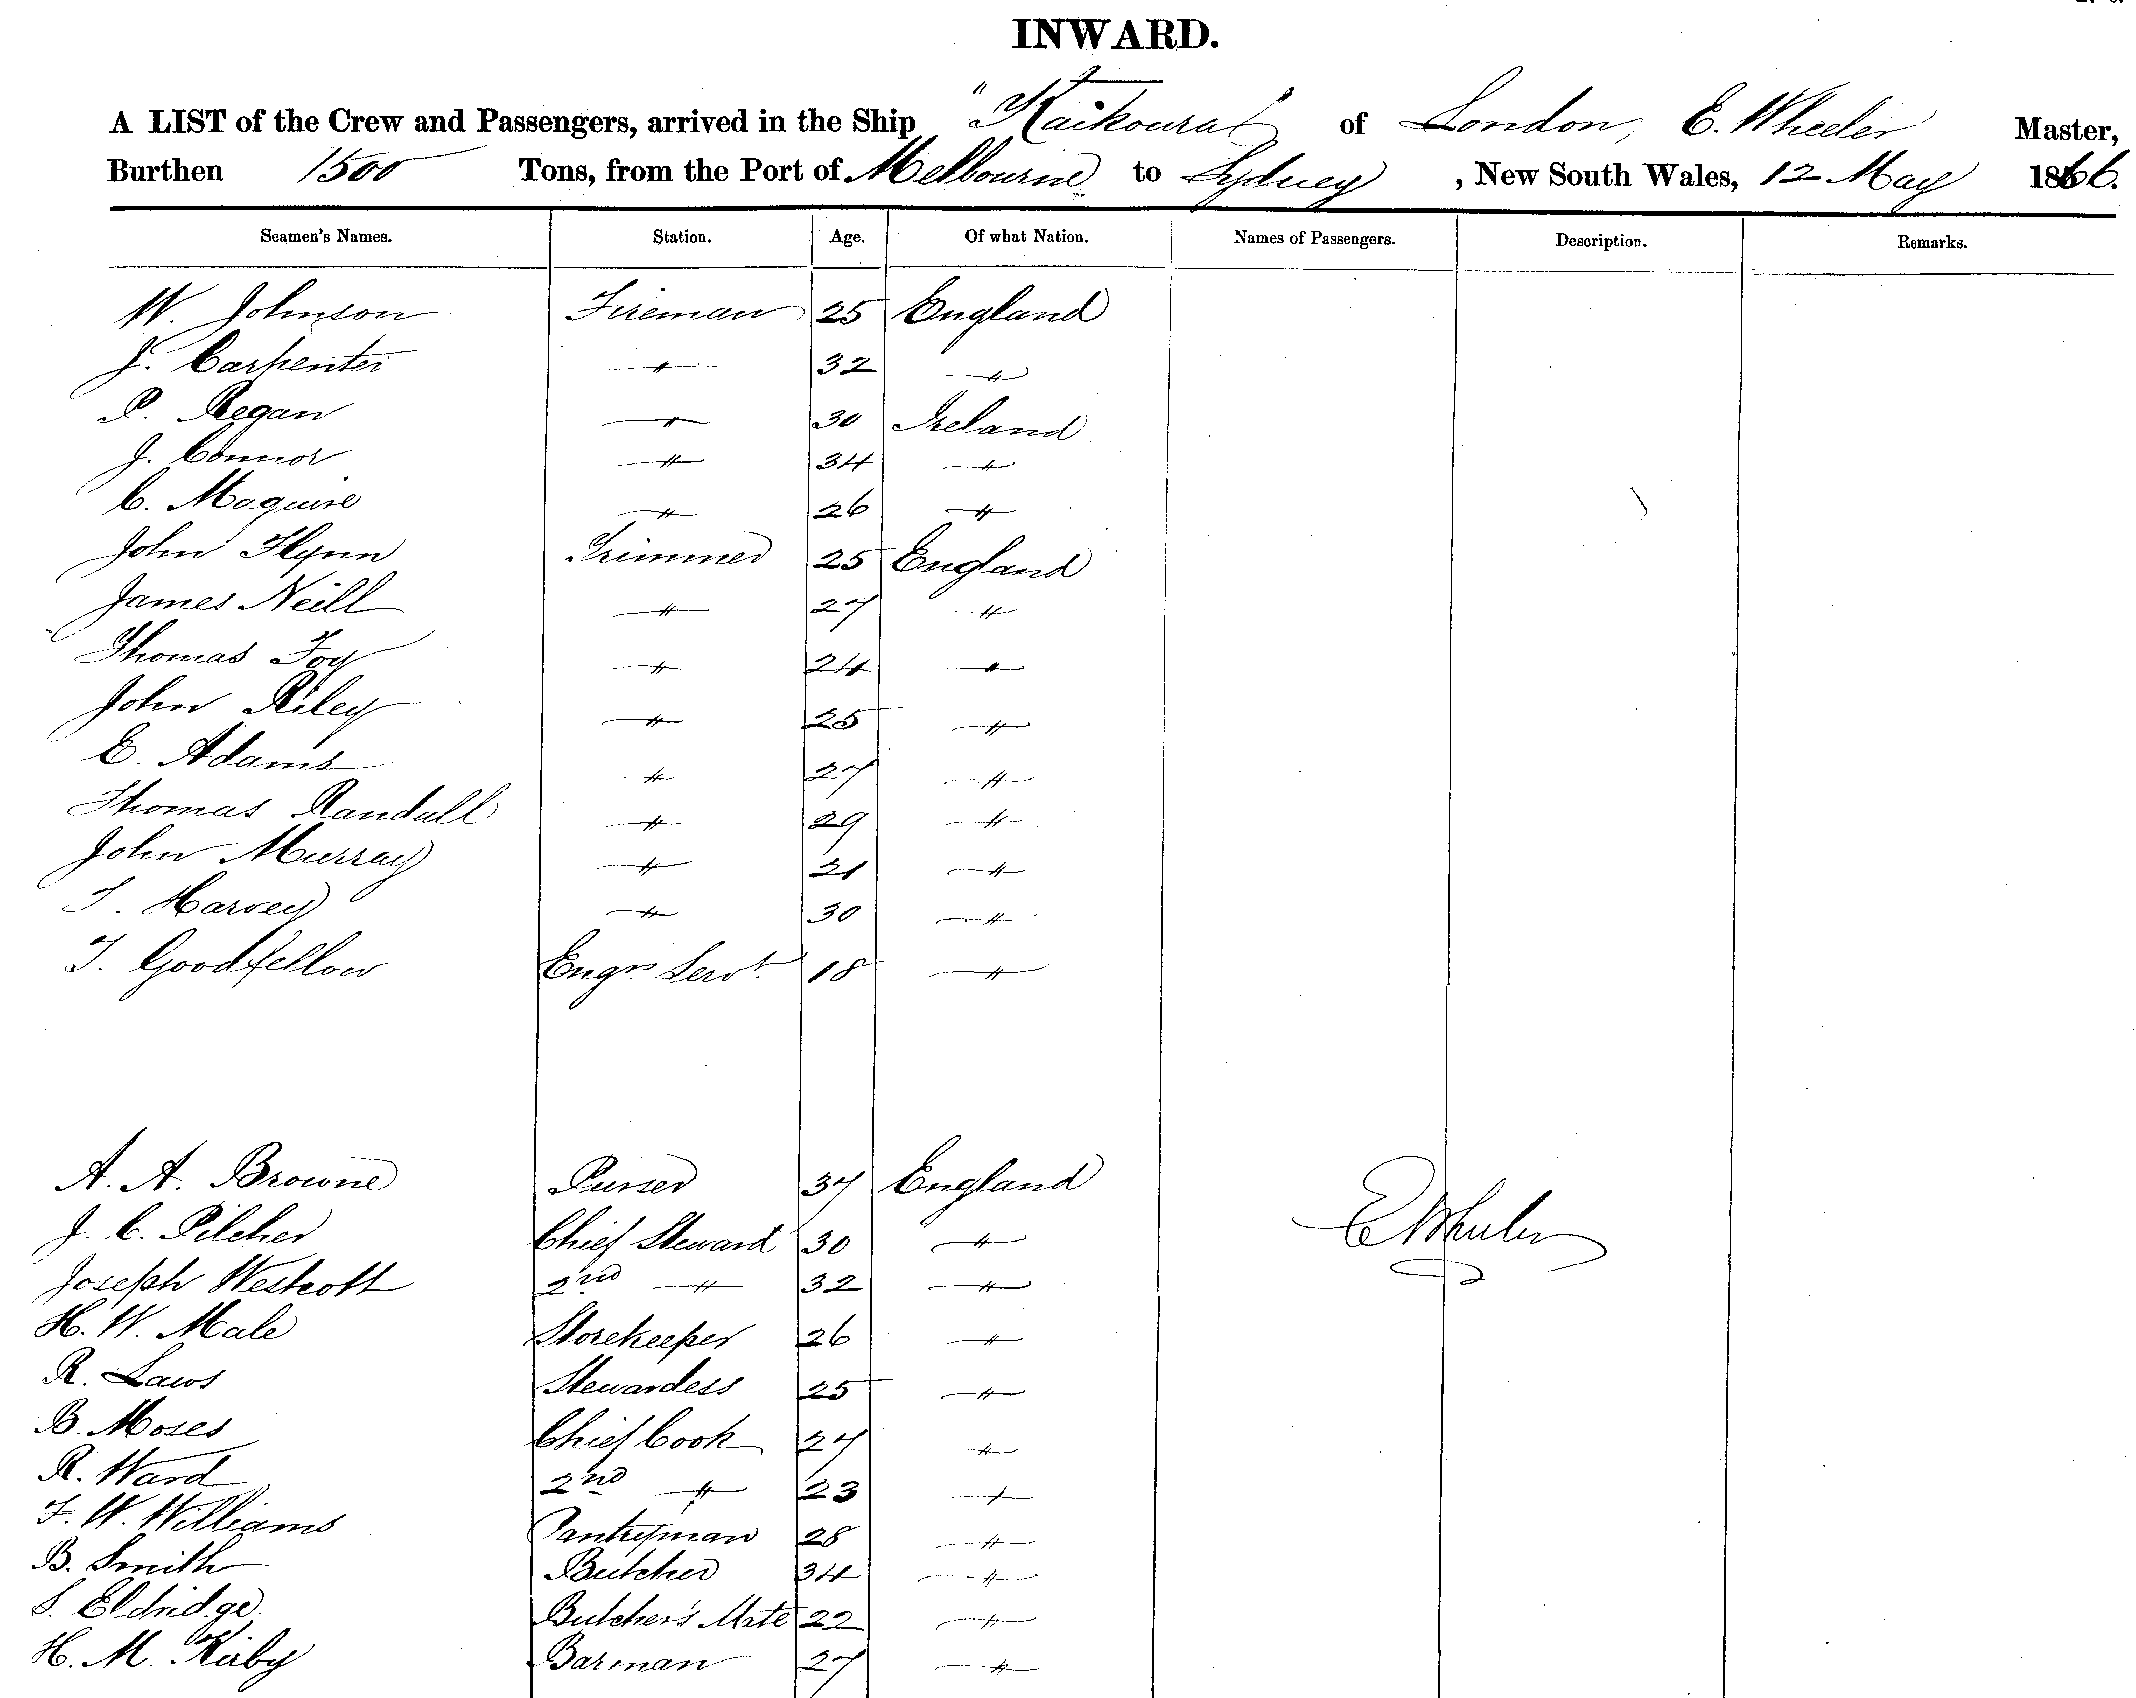 INWARD.
A LIST of the Crew and Passengers, arrived in the Ship "Kaikoura" of London, E. Wheeler Master,
Burthen 1500 Tons, from the Port of Melbourne to Sydney, New South Wales, 12 May 1866.
Seamen's Names. Station. Age. Of what Nation. Names of Passengers. Description. Remarks.
W. Johnson Fireman 25 England
J. Carpenter " 32 "
P. Regan " 30 Ireland
J. Connor " 34 "
C. Maguire " 26 "
John Flynn Trimmer 25 England
James Neill " 27 "
Thomas Foy " 24 "
John Riley " 25 "
E. Adams " 27 "
Thomas Randall " 29 "
John Murray " 21 "
T. Harvey " 30 "
T. Goodfellow Engrs Servt. 18 "
A. A. Browne Purser 37 England
J. C. Pilcher Chief Steward 30 "
E Wheeler
Joseph Westcott 2nd " 32 "
H. W. Male Storekeeper 26 "
R. Laws Stewardess 25 "
B. Moses Chief Cook 27 "
R. Ward 2nd " 23 "
F. W. Williams Pantryman 28 "
B. Smith Butcher 34 "
S. Eldridge Butcher's Mate 22 "
H. M. Kirby Barman 27 "